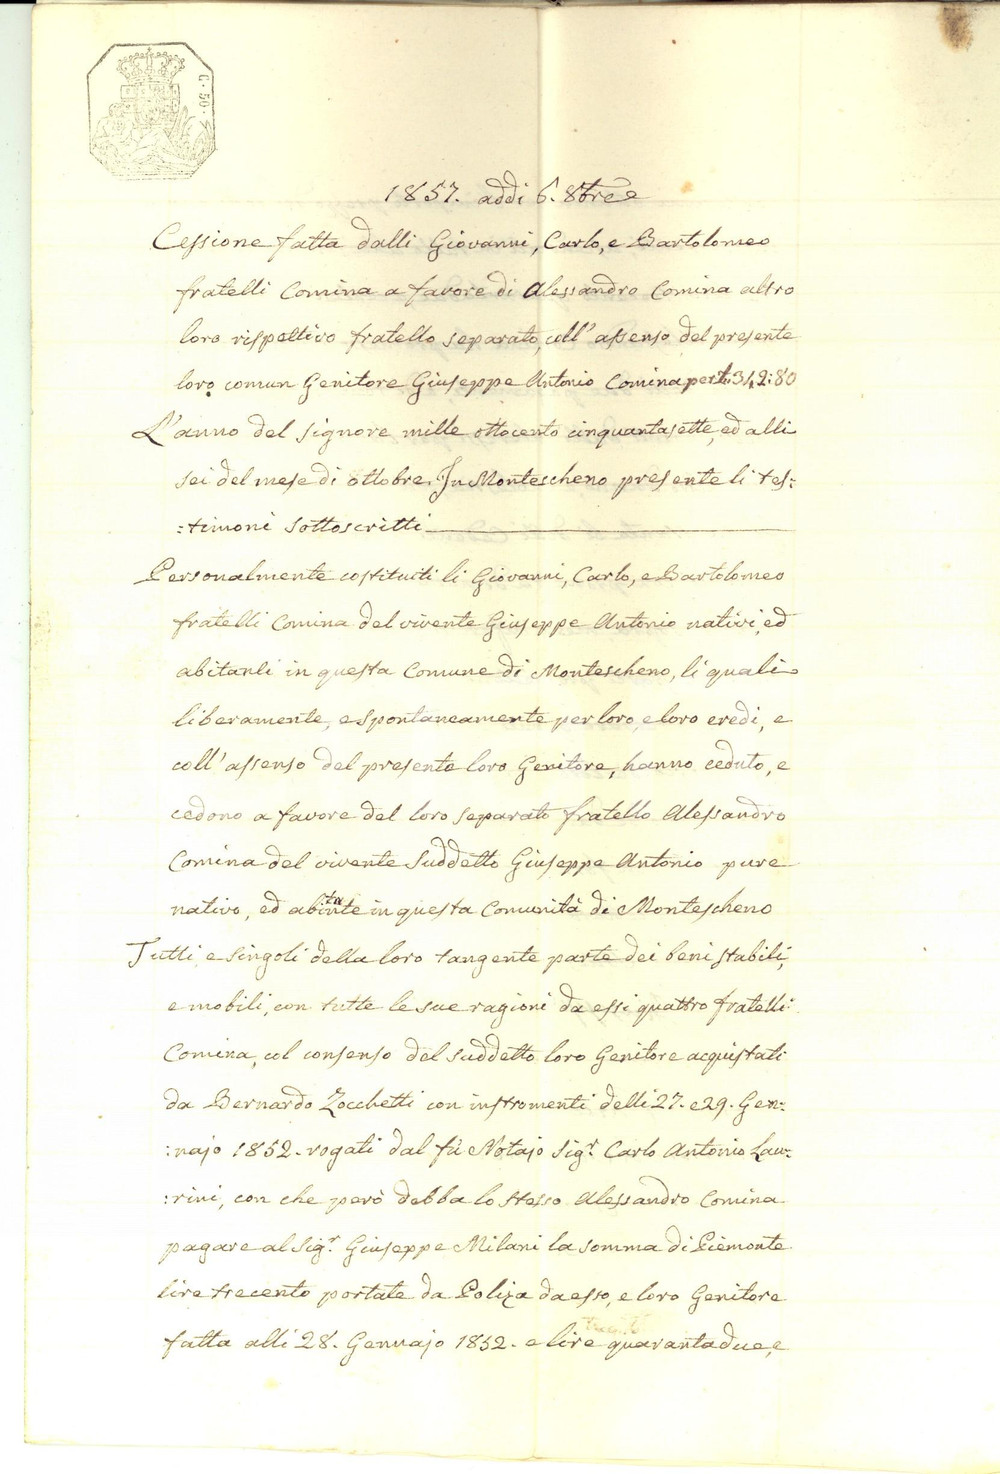 C. 50.
1857. addi 6. 8bre
Cessione fatta dalli Giovanni, Carlo, e Bartolomeo
fratelli Comina a favore di Alessandro Comina altro
loro rispettivo fratello separato, coll' assenso del presente
loro comun Genitore Giuseppe Antonio Comina per £n. 342:80
L'anno del Signore mille ottocento cinquantasette, ed alli
sei del mese di ottobre. In Montescheno presente li tes:
:timoni sottoscritti
Personalmente costituiti li Giovanni, Carlo, e Bartolomeo
fratelli Comina del vivente Giuseppe Antonio nativi, ed
abitanti in questa Comune di Montescheno, li quali
liberamente, e spontaneamente per loro, e loro eredi, e
coll' assenso del presente loro Genitore, hanno ceduto, e
cedono a favore del loro separato fratello Alessandro
Comina del vivente suddetto Giuseppe Antonio pure
nativo, ed abitante in questa Comunità di Montescheno
Tutti, e singoli della loro tangente parte dei beni stabili,
e mobili, con tutte le sue ragioni da essi quattro fratelli
Comina, col consenso del suddetto loro Genitore acquistati
da Bernardo Zocchetti con instromenti delli 27. e 29. Gen:
:najo 1852. rogati dal fù Notajo Sigr. Carlo Antonio Lau:
:rini, con che però debba lo stesso Alessandro Comina
pagare al Sigr. Giuseppe Milani la somma di Piemonte
lire trecento portate da Poliza da esso, e loro Genitore
fatta alli 28. Gennajo 1852. e lire quarantadue, e